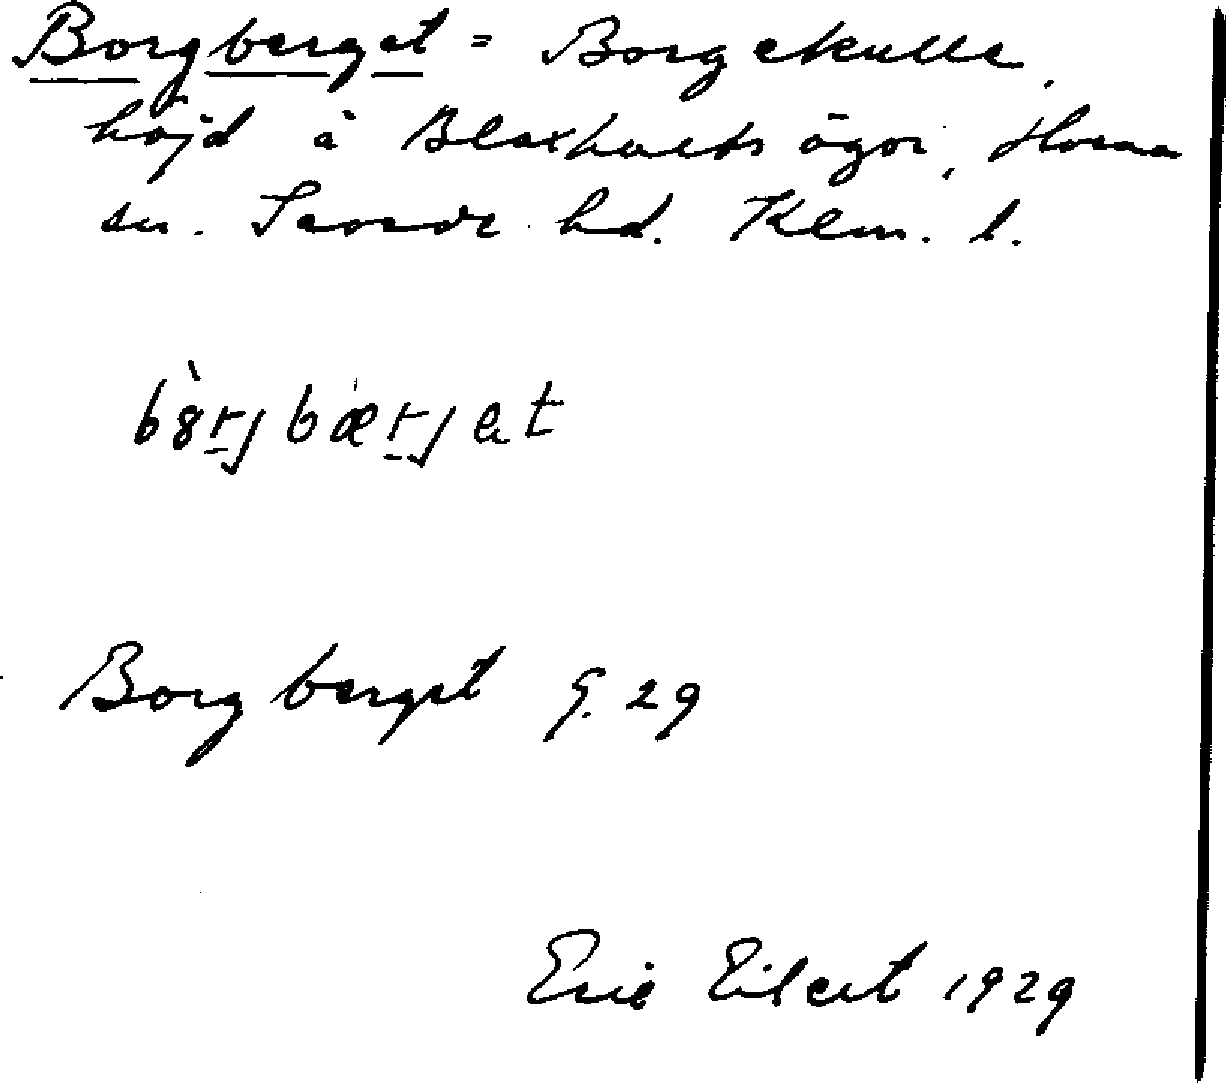 Borgberget = Borgekulle,
höjd å Blaxhults ägor, Hvena
sn. Sevede hd. Klm. l.
bò̀rjbærjet
Borgberget G. 29
Eric Eilert 1929